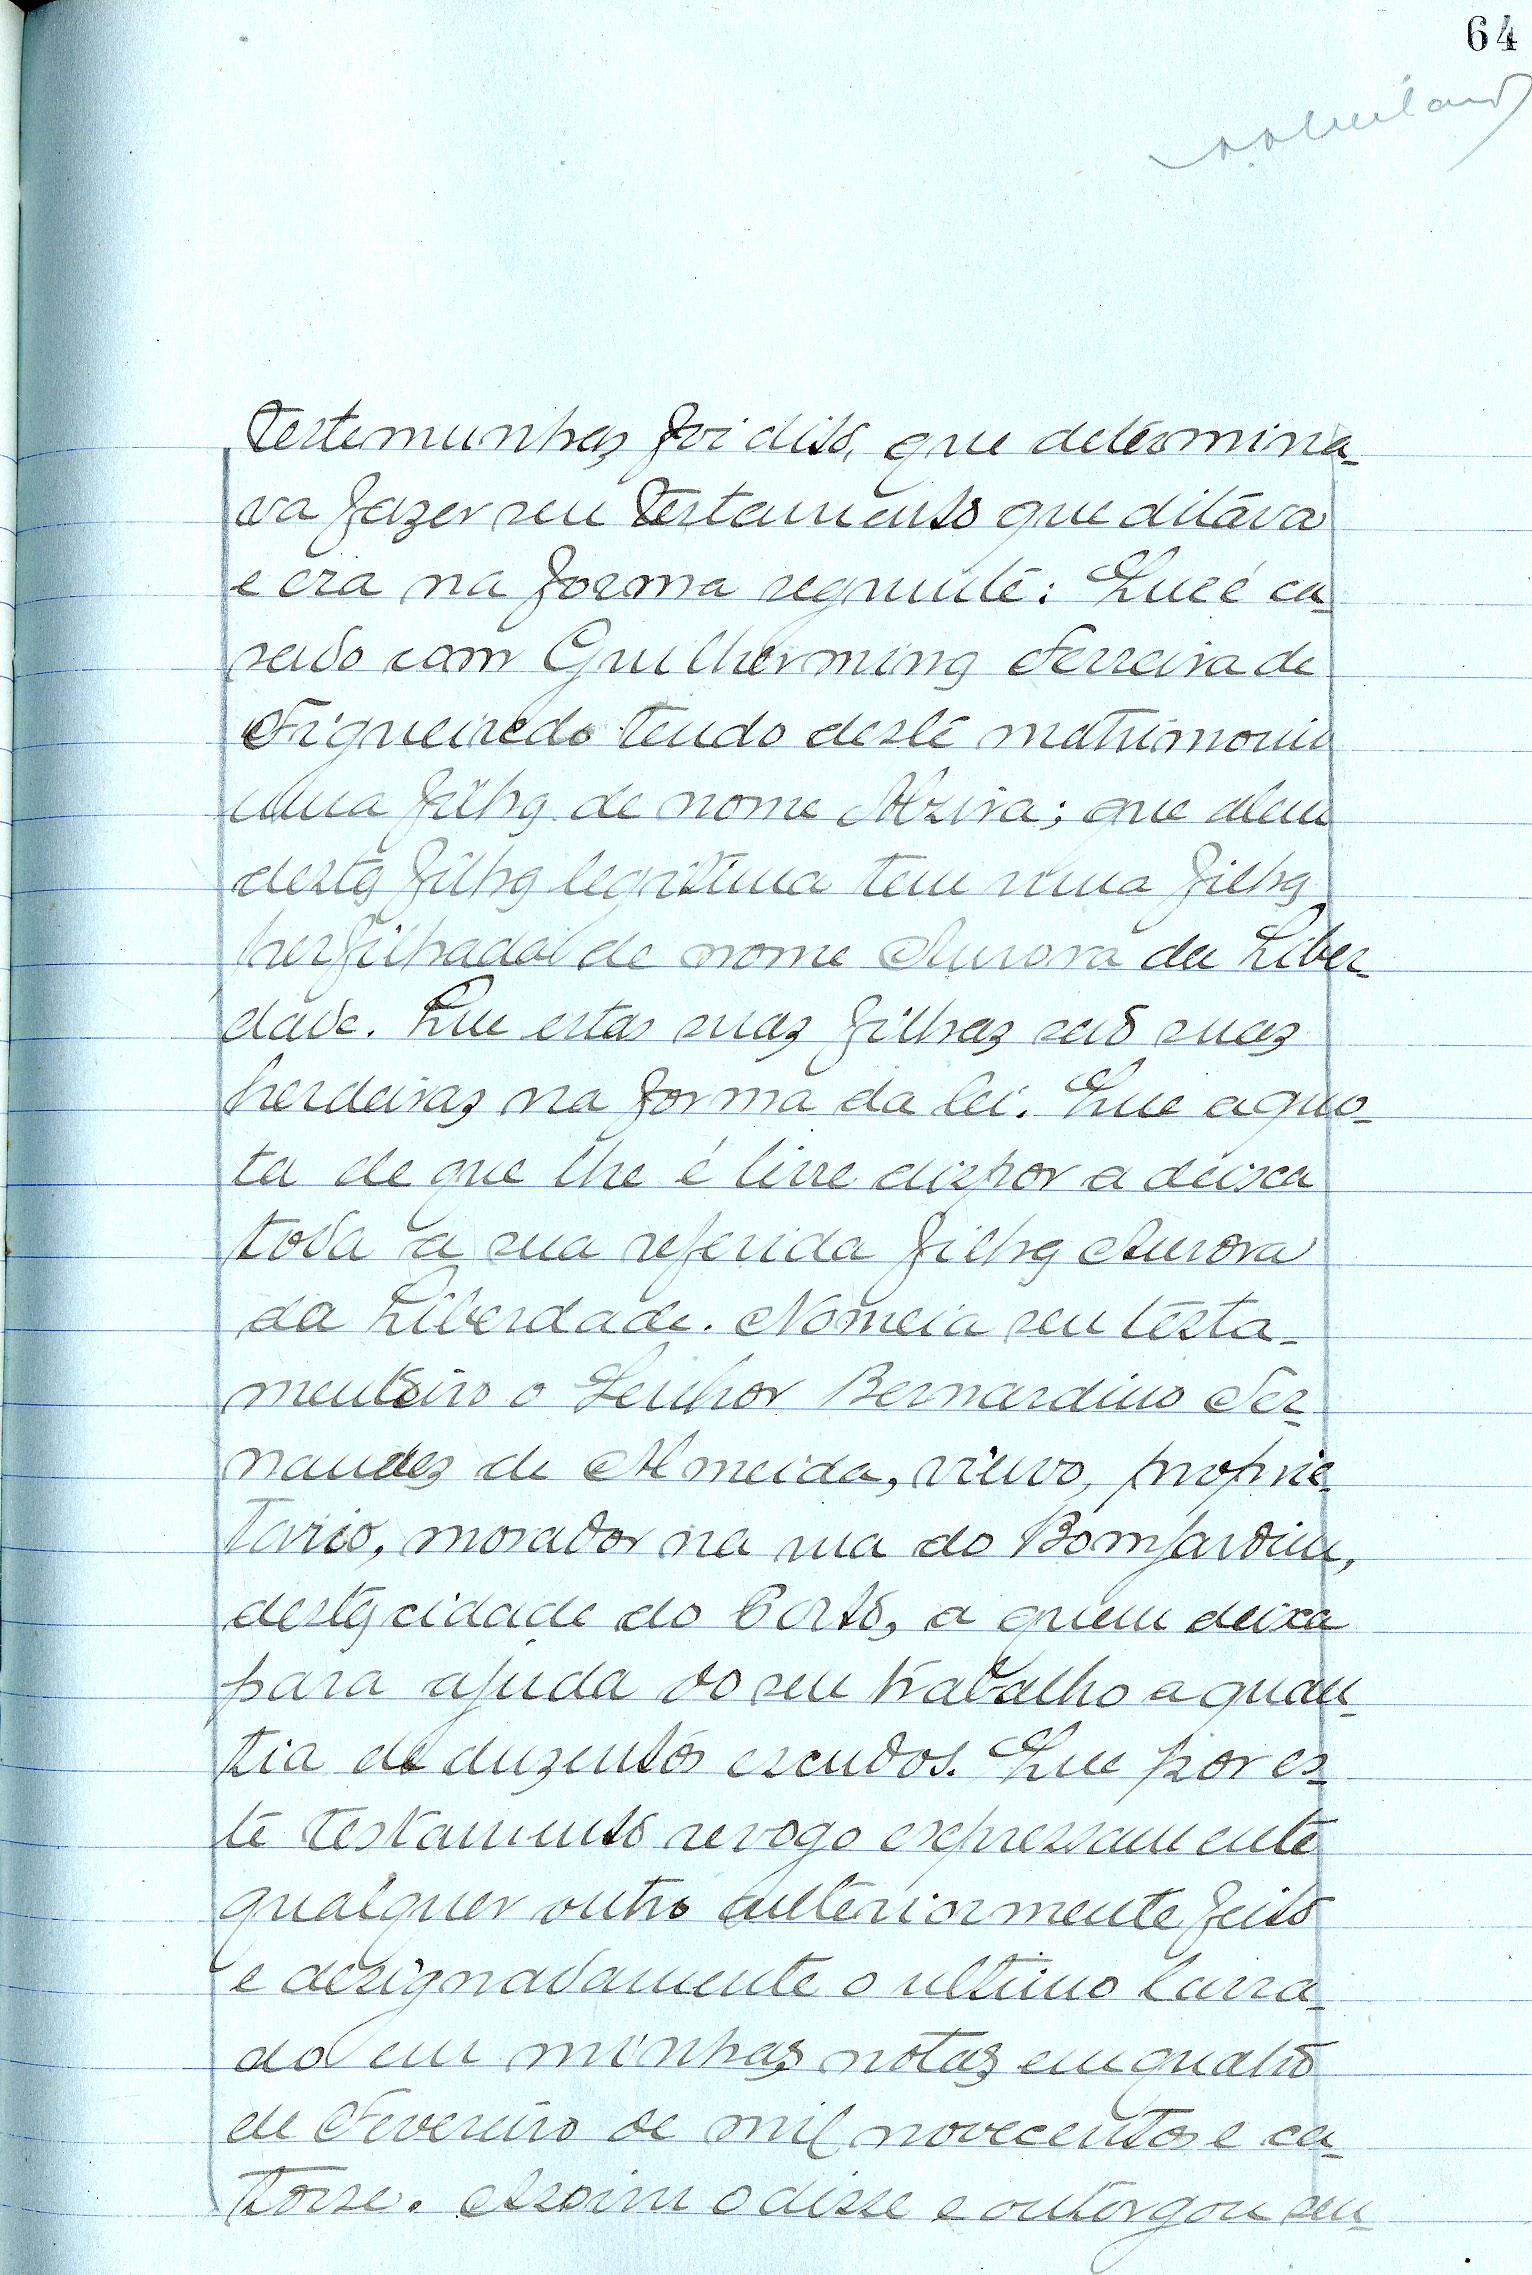 64
testemunhas foi dito, que determina-
va fazer seu testamento que ditáva
e era na forma seguinte: Que é ca-
sado com Guilhermina Ferreira de
Figueiredo tendo deste matrimonio
uma filha de nome Alzira; que alem
desta filha legitima tem uma filha
perfilhada de nome Aurora da Liber-
dade. Que estas suas filhas são suas
herdeiras na forma da lei. Que a quo-
ta de que lhe é livre dispor a deixa
toda a sua referida filha Aurora
da Liberdade. Nomeia seu testa-
menteiro o Senhor Bernardino Fer-
nandes de Almeida, viuvo, proprie-
tario, morador na rua do Bomjardim,
desta cidade do Porto, a quem deixa
para ajuda do seu trabalho a quan-
tia de duzentos escudos. Que por es-
te testamento revogo expressamente
qualquer outro anteriormente feito
e designadamente o ultimo lavra-
do em minhas notas em quatro
de Fevereiro de mil novecentos e ca-
torse. Assim o disse e outorgou sen-